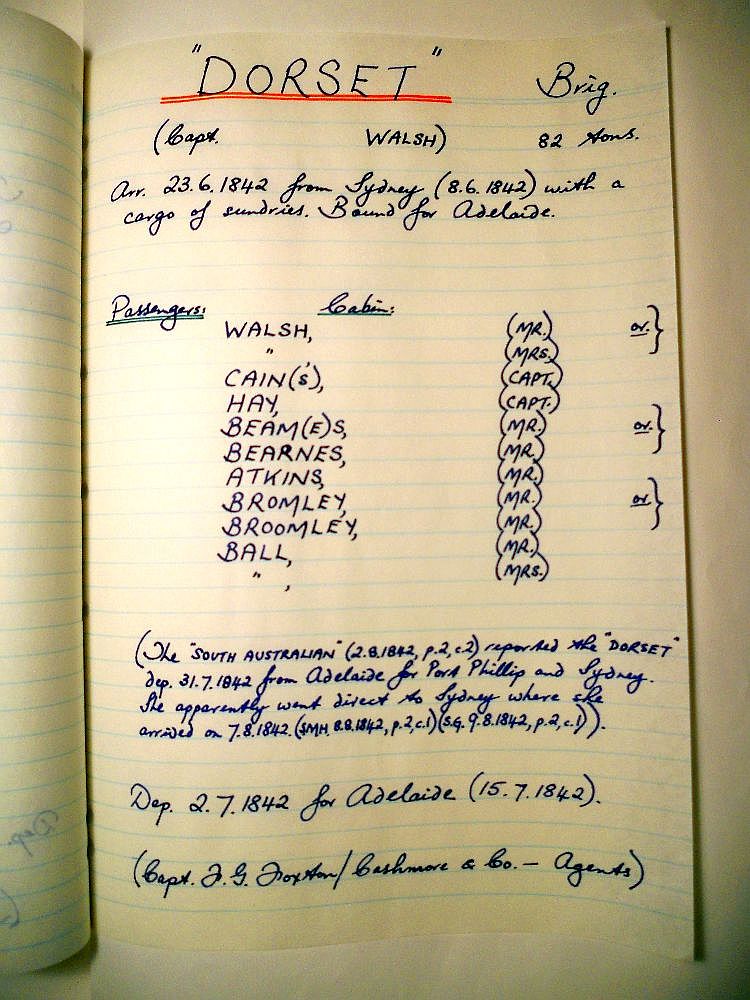 "DORSET" Brig.
(Capt. WALSH) 82 tons.
Arr. 23.6.1842 from Sydney (8.6.1842) with a
cargo of sundries. Bound for Adelaide.
Passengers: Cabin:
WALSH, (MR.) or }
" (MRS.)
CAIN('s), (CAPT.)
HAY, (CAPT.)
BEAM(E)S, (MR.) or }
BEARNES, (MR.)
ATKINS, (MR.)
BROMLEY, (MR.) or }
BROOMLEY, (MR.)
BALL, (MR.)
" , (MRS.)
(The "SOUTH AUSTRALIAN" (2.8.1842, p.2,c.2) reported the "DORSET"
dep. 31.7.1842 from Adelaide for Port Phillip and Sydney.
She apparently went direct to Sydney where she
arrived on 7.8.1842. (SMH. 8.8.1842, p.2,c.1)(S.G. 9.8.1842, p.2,c.1)).
Dep. 2.7.1842 for Adelaide (15.7.1842).
(Capt. J.G. Foxton/Cashmore & Co. — Agents)